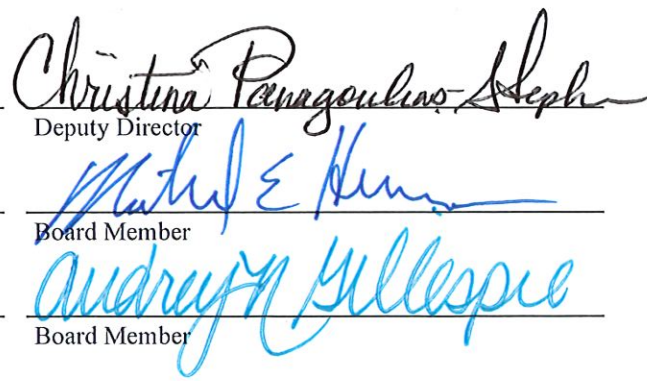 Christina Panagoulias-Steph
Deputy Director
E
Board Member
Audrey N Gillespie
Board Member